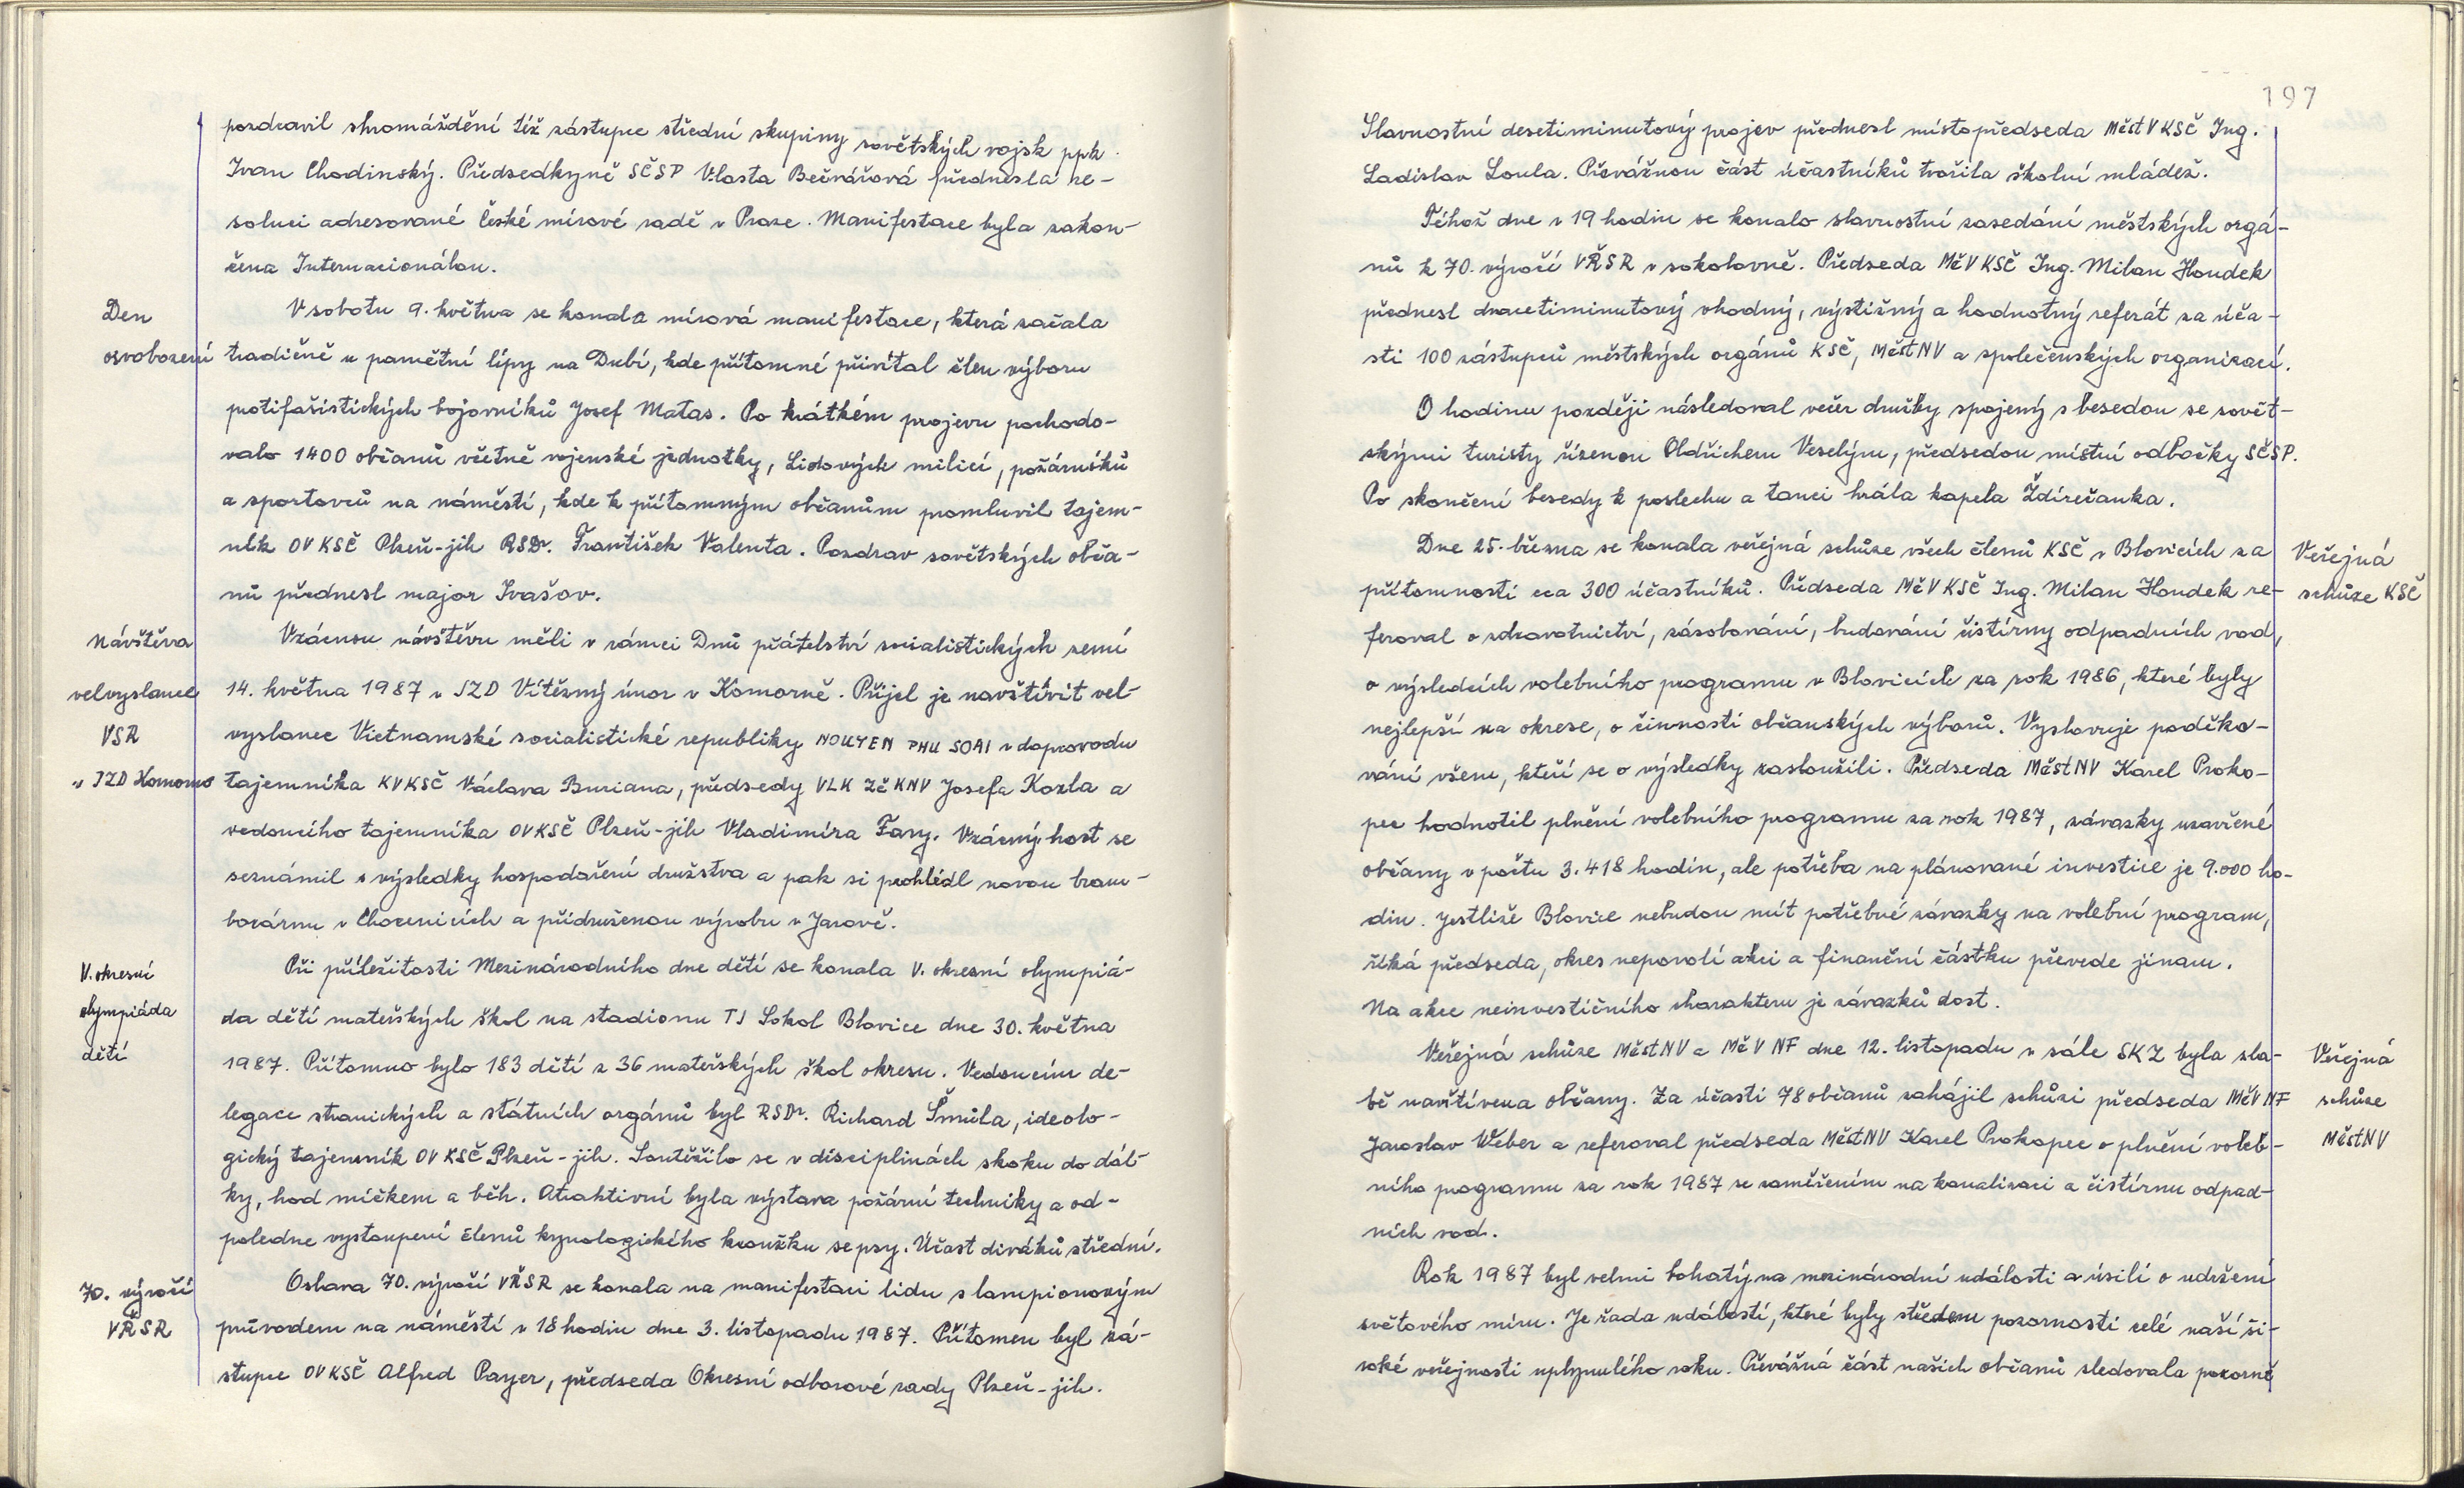 pozdravil shromáždění též zástupce střední skupiny sovětských vojsk ppk.
Ivan Chodinský. Předsedkyně SČSP Vlasta Bečvářová přednesla re-
soluci adresované České mírové radě v Praze. Manifestace byla zakon-
čena Internacionálou.
Den
osvobození
V sobotu 9. května se konala mírová manifestace, která začala
tradičně u pamětní lípy na Dubí, kde přítomné přivítal člen výboru
protifašistických bojovníků Josef Matas. Po krátkém projevu pochodo-
valo 1400 občanů včetně vojenské jednotky, Lidových milicí, požárníků
a sportovců na náměstí, kde k přítomným občanům promluvil tajem-
ník OV KSČ Plzeň-jih RSDr. František Valenta. Pozdrav sovětských obča-
nů přednesl major Ivašov.
Návštěva
velvyslance
VSR
v JZD Komorno
Vzácnou návštěvu měli v rámci Dnů přátelství socialistických zemí
14. května 1987 v JZD Vítězný únor v Komorně. Přijel je navštívit vel-
vyslanec Vietnamské socialistické republiky NOUYEN PHU SOAI v doprovodu
tajemníka KVKSČ Václava Buriana, předsedy VLK ZČ KNV Josefa Kozla a
vedoucího tajemníka OVKSČ Plzeň-jih Vladimíra Fary. Vzácný host se
seznámil s výsledky hospodaření družstva a pak si prohlédl novou bram-
borárnu v Chocenicích a přidruženou výrobu v Jarově.
V. okresní
olympiáda
dětí
Při příležitosti Mezinárodního dne dětí se konala V. okresní olympiá-
da dětí mateřských škol na stadionu TJ Sokol Blovice dne 30. května
1987. Přítomno bylo 183 dětí z 36 mateřských škol okresu. Vedoucím de-
legace stranických a státních orgánů byl RSDr. Richard Šmůla, ideolo-
gický tajemník OV KSČ Plzeň-jih. Soutěžilo se v disciplinách skoku do dál-
ky, hod míčkem a běh. Atraktivní byla výstava požární techniky a od-
poledne vystoupení členů kynologického kroužku se psy. Účast diváků střední.
70. výročí
VŘSR
Oslava 70. výročí VŘSR se konala na manifestaci lidu s lampionovým
průvodem na náměstí v 18 hodin dne 3. listopadu 1987. Přítomen byl zá-
stupce OV KSČ Alfred Payer, předseda Okresní odborové rady Plzeň-jih.
197
Slavnostní desetiminutový projev přednesl místopředseda MěstV KSČ Ing.
Ladislav Loula. Převážnou část účastníků tvořila školní mládež.
Téhož dne v 19 hodin se konalo slavnostní zasedání městských orgá-
nů k 70. výročí VŘSR v sokolovně. Předseda MěV KSČ Ing. Milan Houdek
přednesl dvacetiminutový vhodný, výstižný a hodnotný referát za úča-
sti 100 zástupců městských orgánů KSČ, MěstNV a společenských organizací.
O hodinu později následoval večer družby spojený s besedou se sovět-
skými turisty řízenou Oldřichem Veselým, předsedou místní odbočky SČSP.
Po skončení besedy k poslechu a tanci hrála kapela Ždírečanka.
Dne 25. března se konala veřejná schůze všech členů KSČ v Blovicích za
přítomnosti cca 300 účastníků. Předseda MěV KSČ Ing. Milan Houdek re-
feroval o zdravotnictví, zásobování, budování čistírny odpadních vod,
o výsledcích volebního programu v Blovicích za rok 1986, které byly
nejlepší na okrese, o činnosti občanských výborů. Vyslovuje poděko-
vání všem, kteří se o výsledky zasloužili. Předseda MěstNV Karel Proko-
pec hodnotil plnění volebního programu za rok 1987, závazky uzavřené
občany v počtu 3.418 hodin, ale potřeba na plánované investice je 9.000 ho-
din. Jestliže Blovice nebudou mít potřebné závazky na volební program,
říká předseda, okres nepovolí akci a finanční částku převede jinam.
Na akce neinvestičního charakteru je závazků dost.
Veřejná
schůze KSČ
Veřejná schůze MěstNV a MěV NF dne 12. listopadu v sále SKZ byla sla-
bě navštívena občany. Za účasti 78 občanů zahájil schůzi předseda MěV NF
Jaroslav Weber a referoval předseda MěstNV Karel Prokopec o plnění voleb-
ního programu za rok 1987 se zaměřením na kanalizaci a čistírnu odpad-
ních vod.
Veřejná
schůze
MěstNV
Rok 1987 byl velmi bohatý na mezinárodní události a úsilí o udržení
světového míru. Je řada událostí, které byly středem pozornosti celé naší ši-
roké veřejnosti uplynulého roku. Převážná část našich občanů sledovala pozorně